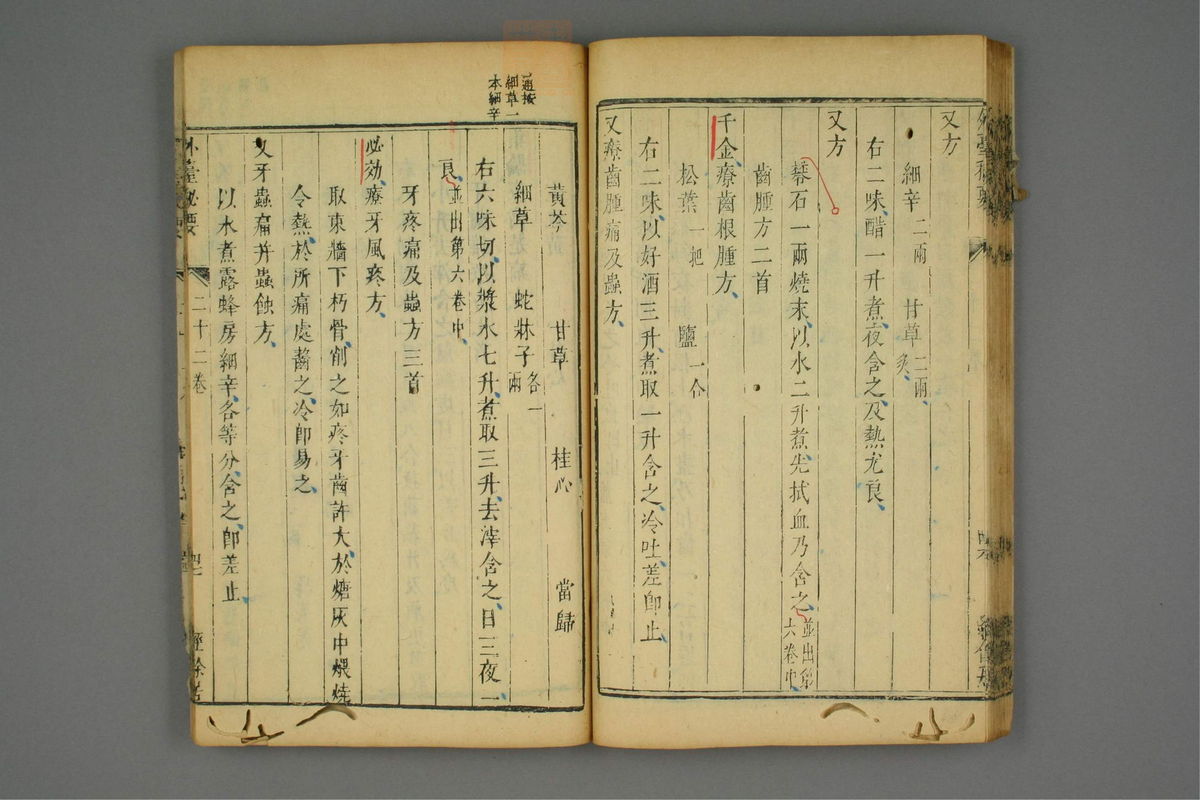 又方
細辛二兩 甘草二兩炙
右二味醋一升煮夜含之及熱尤良
又方
礬石一兩燒末以水二升煮先拭血乃含之並出第六卷中
齒腫方二首
千金療齒根腫方
松葉一把 鹽一合
右二味以好酒三升煮取一升含之冷吐差即止
又療齒腫痛及蟲方
通按細草一本細辛
黃芩 甘草 桂心 當歸
細草 蛇牀子各一兩
右六味切以漿水七升煮取三升去滓含之日三夜一
良並出第六卷中
牙疼痛及蟲方三首
必効療牙風疼方
取東牆下朽骨削之如疼牙齒許大於煻灰中煨燒
令熱於所痛處齧之冷即易之
又牙蟲痛并蟲蝕方
以水煮露蜂房細辛各等分含之即差止
外臺秘要 二十二卷